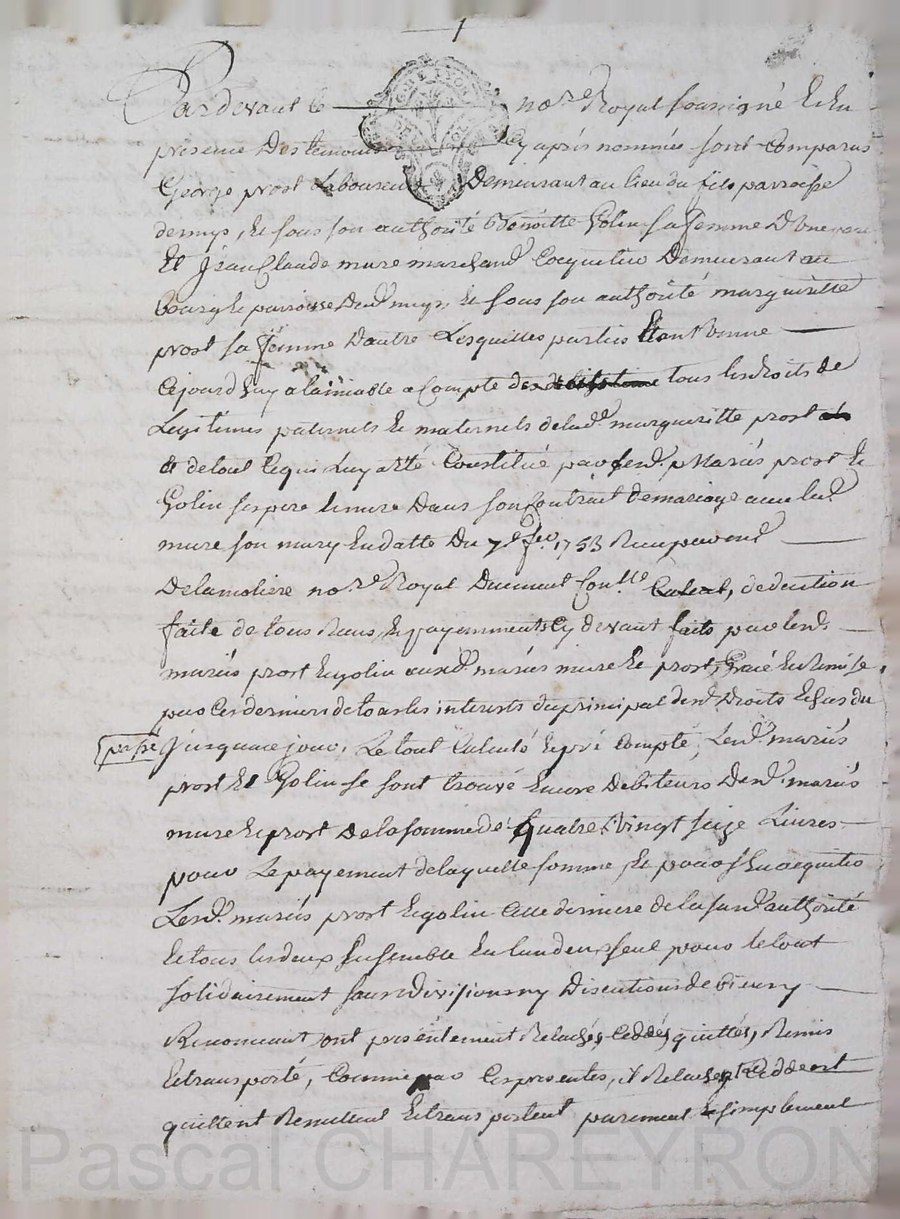 1
Pardevant le no.re Royal soussigné Et En
presence Des temoins Cy après nommés sont Comparus
George prost Laboureur Demeurant au lieu du fils parroisse
demys, Et sous son authorité Benoitte Golin sa femme D'une part
Et Jean Claude mure marchand Cocquetier Demeurant au
bourg Et parroisse Dud. mys, Et sous son authorité marguieritte
prost sa femme D'autre Lesquelles parties Etant Venue
Cejourd'huy a l'aimable a Compte de tous les droits de
Legitimes paternels Et maternels de lad.e margueritte prost
Et de tout Cequi Luy a été Constitué par lesd. Mariés prost Et
Golin ses pere Et mere Dans son Contrait de mariage avec led.
mure son mary En datte Du 7.e 1753 Recu pardevand
Delamoliere no.re Royal Duement Con.lle Calcul, deduction
faite de tous Recus, Et payemments Cy devant faits par lesd.
mariés prost Et golin auxd. mariés mure Et prost, Et Remise
par Ces derniers de tous les interests du principal desd. Droits Echus du
passé Jusqua ce jour, Le tout Calculé Et Compté, Lesd. mariés
prost Et Golin se sont trouvé Encore Debiteurs Desd. mariés
mure Et prost De la somme de Quatre Vingt seize Livres
pour Le payement de laquelle somme, Et pour s'En acquitter
Lesd. mariés prost Et golin Cette derniere de la susd. authorité
Et tous les deux Ensemble En lun deux seul pour le tout
solidairement sans division ny Discution de bien ny
Renoncant ont présentement Relachés, Ceddés, quittés, Remis
Et transporté, Comme par Ces presentes, il Relachent Ceddent
quittent Remettent Et transportent purement Et simplement
Pascal CHAREYRON